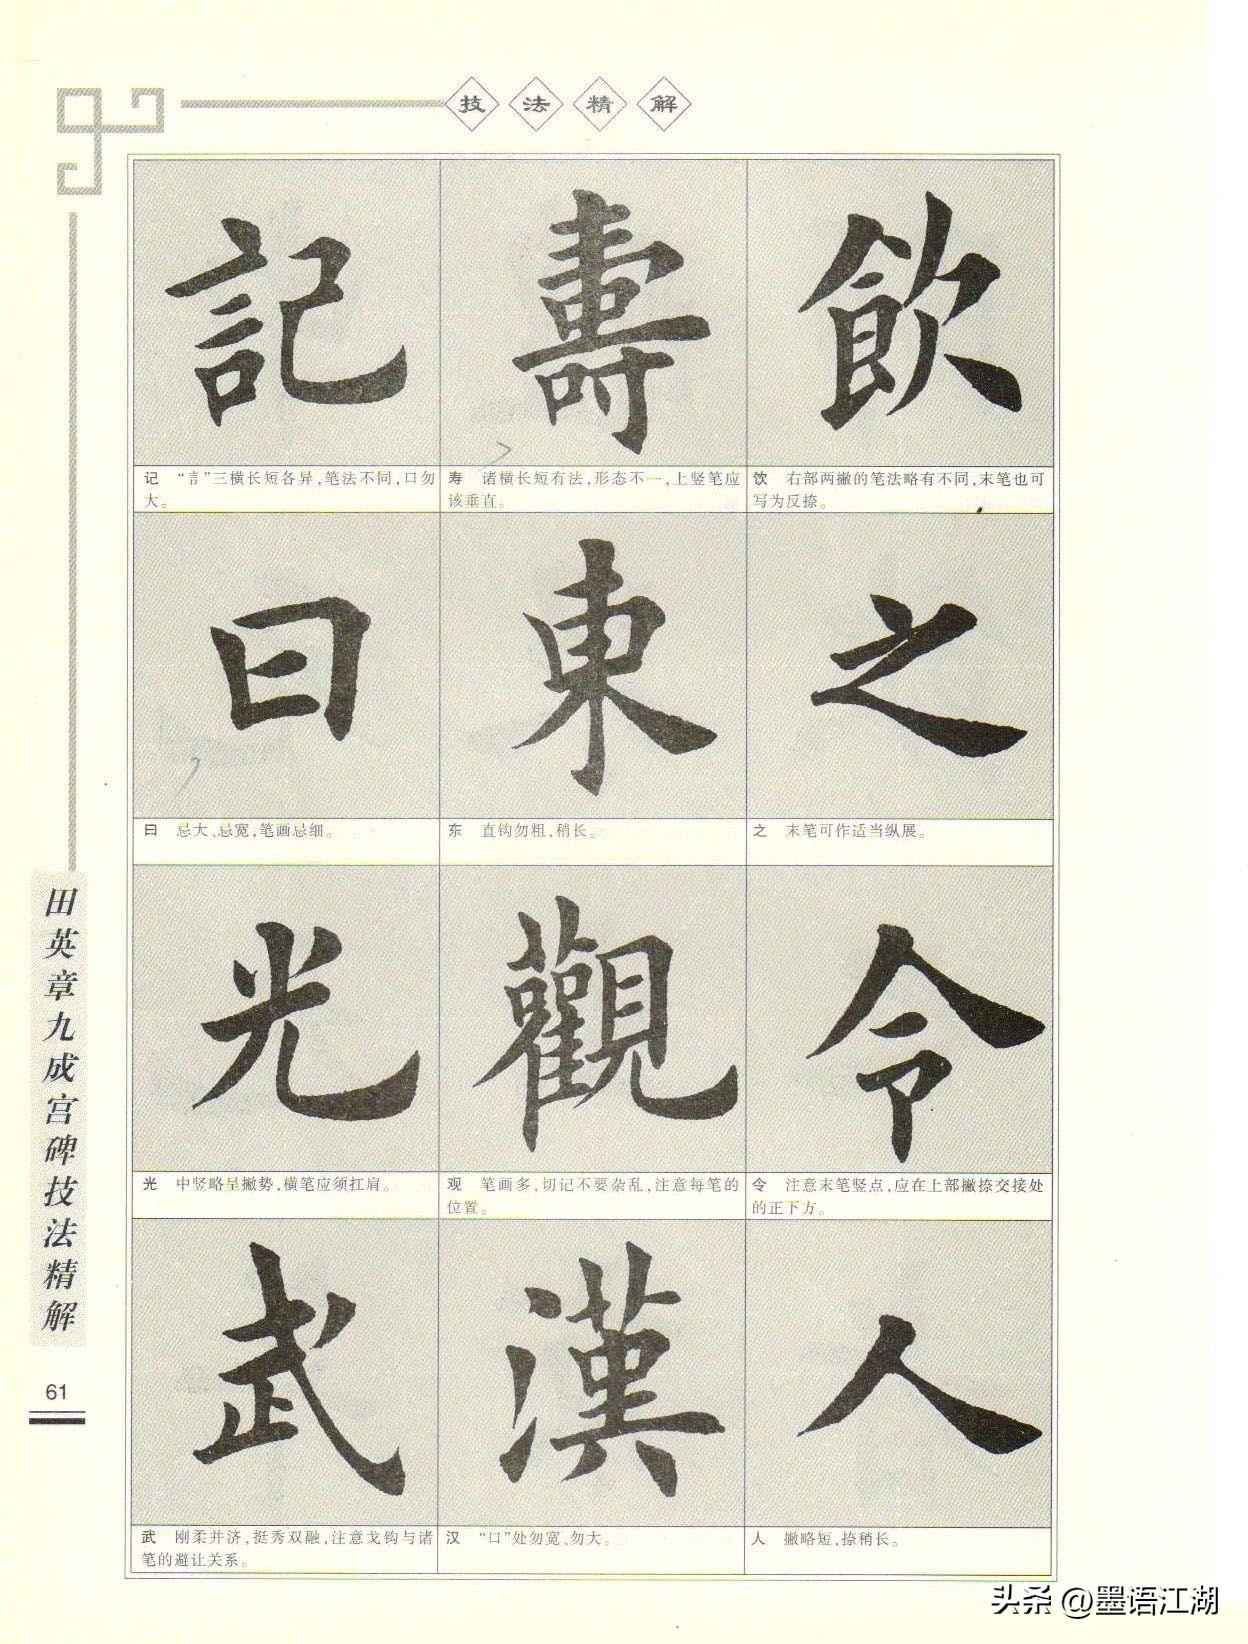 技法精解
記 壽 飲
记 “言”三横长短各异,笔法不同,口勿
大。
寿 诸横长短有法,形态不一,上竖笔应
该垂直。
饮 右部两撇的笔法略有不同,末笔也可
写为反捺。
曰 東 之
曰 忌大、忌宽,笔画忌细。
东 直钩勿粗,稍长。
之 末笔可作适当纵展。
光 觀 令
光 中竖略呈撇势,横笔应须扛肩。
观 笔画多,切记不要杂乱,注意每笔的
位置。
令 注意末笔竖点,应在上部撇捺交接处
的正下方。
武 漢 人
武 刚柔并济,挺秀双融,注意戈钩与诸
笔的避让关系。
汉 “口”处勿宽、勿大。
人 撇略短,捺稍长。
田英章九成宫碑技法精解
61
头条 @墨语江湖